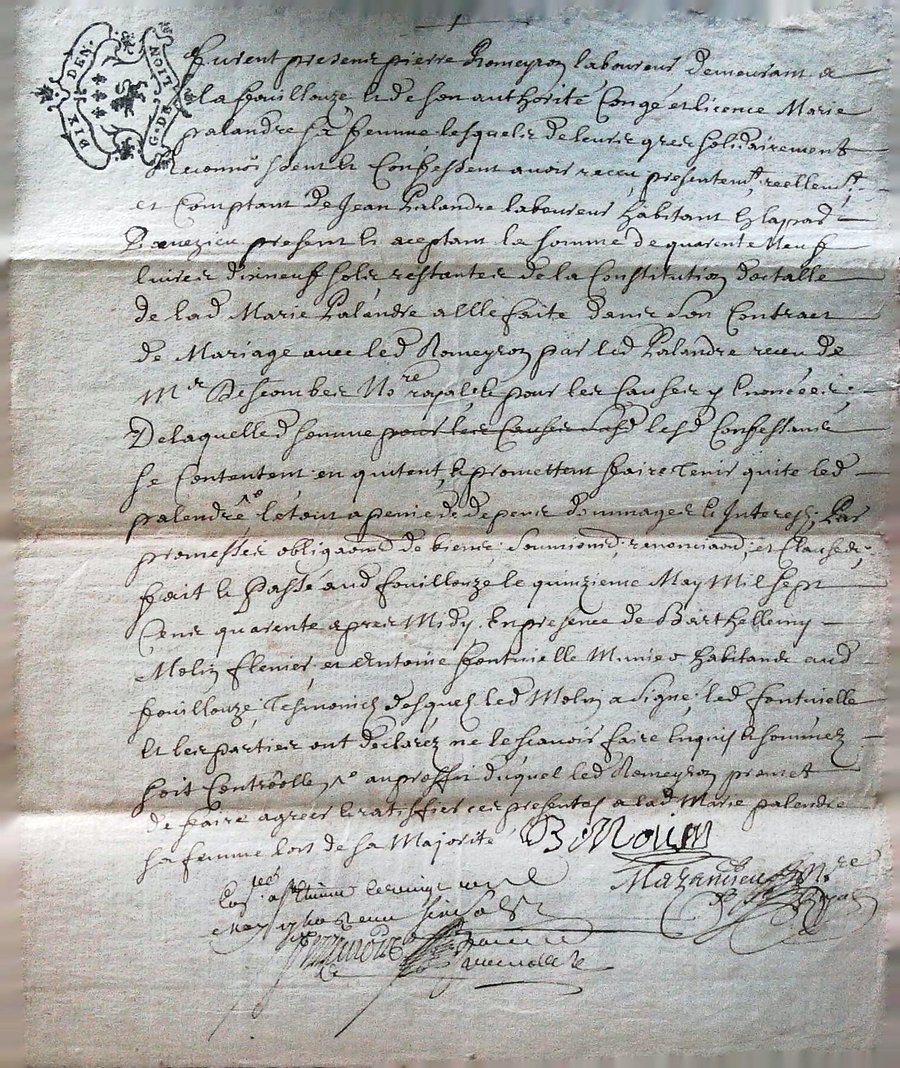 SIX DEN.
G. DE LION
furent presens pierre Romeyron laboureur demeurant a
la fouillouze et de son authorité Congé et licence Marie
palandre sa femme lesquels de leurs gres solidairement
Reconnoissent et Confessent avoir receu presentemt, reellemt,
et Comptant de Jean Palandre laboureur habitant
present et aceptant la somme de quarente Neuf
livres dixneuf sols restantes de la Constitution doctalle
de lad Marie Palandre a elle faite dans son Contract
de Mariage avec led Romeyron par led Palandre receu de
Mr Descombes Nore royal et pour les Causes y Enoncées;
De laquelle d somme pour les Causes susd lesd Confessants
se Contentent en quitent, et promettent faire tenir quite led
palendre le tout a peine de depens dommages et Interests; Par
promesses obligaond de biens; soumiond; renonciaond; et Clauses;
fait et Passé aud fouillouze le quinzieme May Mil sept
Cens quarente apres Midy, En presence de Barthellemy
Molin et Antoine fontvielle habitants aud
fouillouze; Tesmoins desquels led Molin a signé; led fontvielle
Et les parties ont declarez ne le scavoir faire Enquis et sommez
soit Controolle, au proffit duquel led Romeyron promet
de faire agreer et ratiffier ces presentes a lad Marie palendre
sa femme lors de sa Majorité B Moulin
Nore